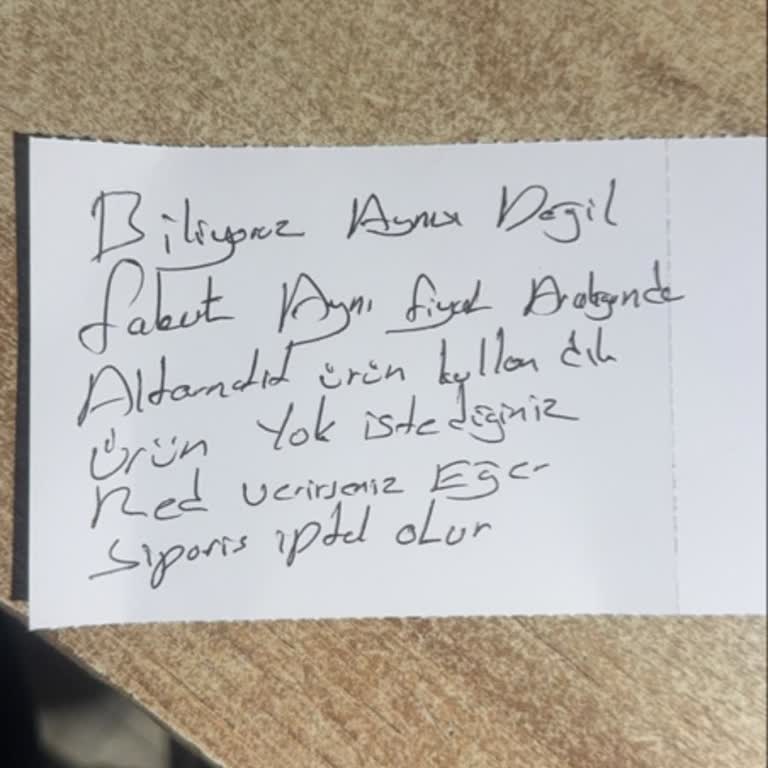 Biliyoruz Aynısı Değil
fakat Aynı fiyat Aralığında
Alternatif ürün kullandık
ürün Yok istediğiniz
Red verirseniz Eğer
Sipariş iptal olur